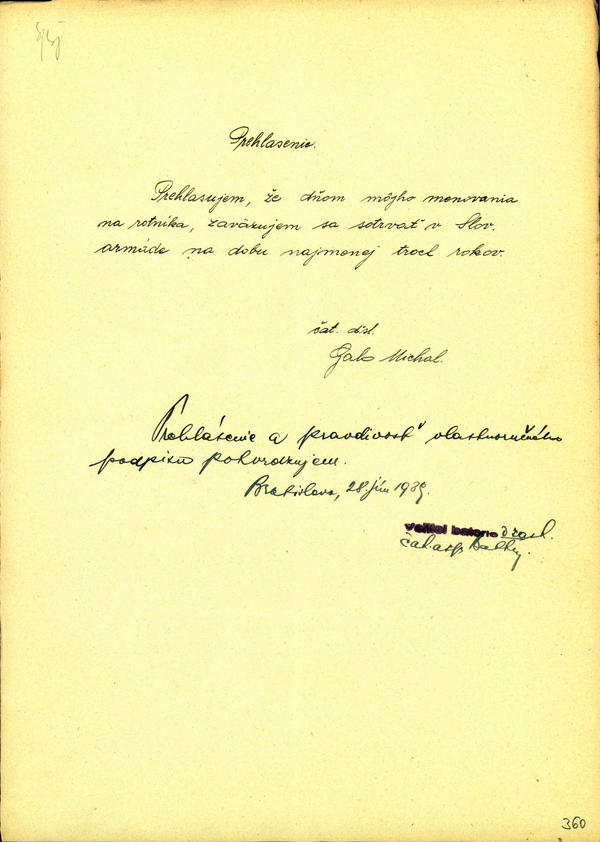 Prehlasenie.
Prehlasujem, že dňom môjho menovania
na rotníka, zaväzujem sa sotrvať v Slov.
armáde na dobu najmenej troch rokov.
čat. dsl.
Gabo Michal.
Prehlásenie a pravdivosť vlastnoručného
podpisu potvrdzujem.
Bratislava, 28. jún 1939.
veliteľ baterie
čat. asp.
360